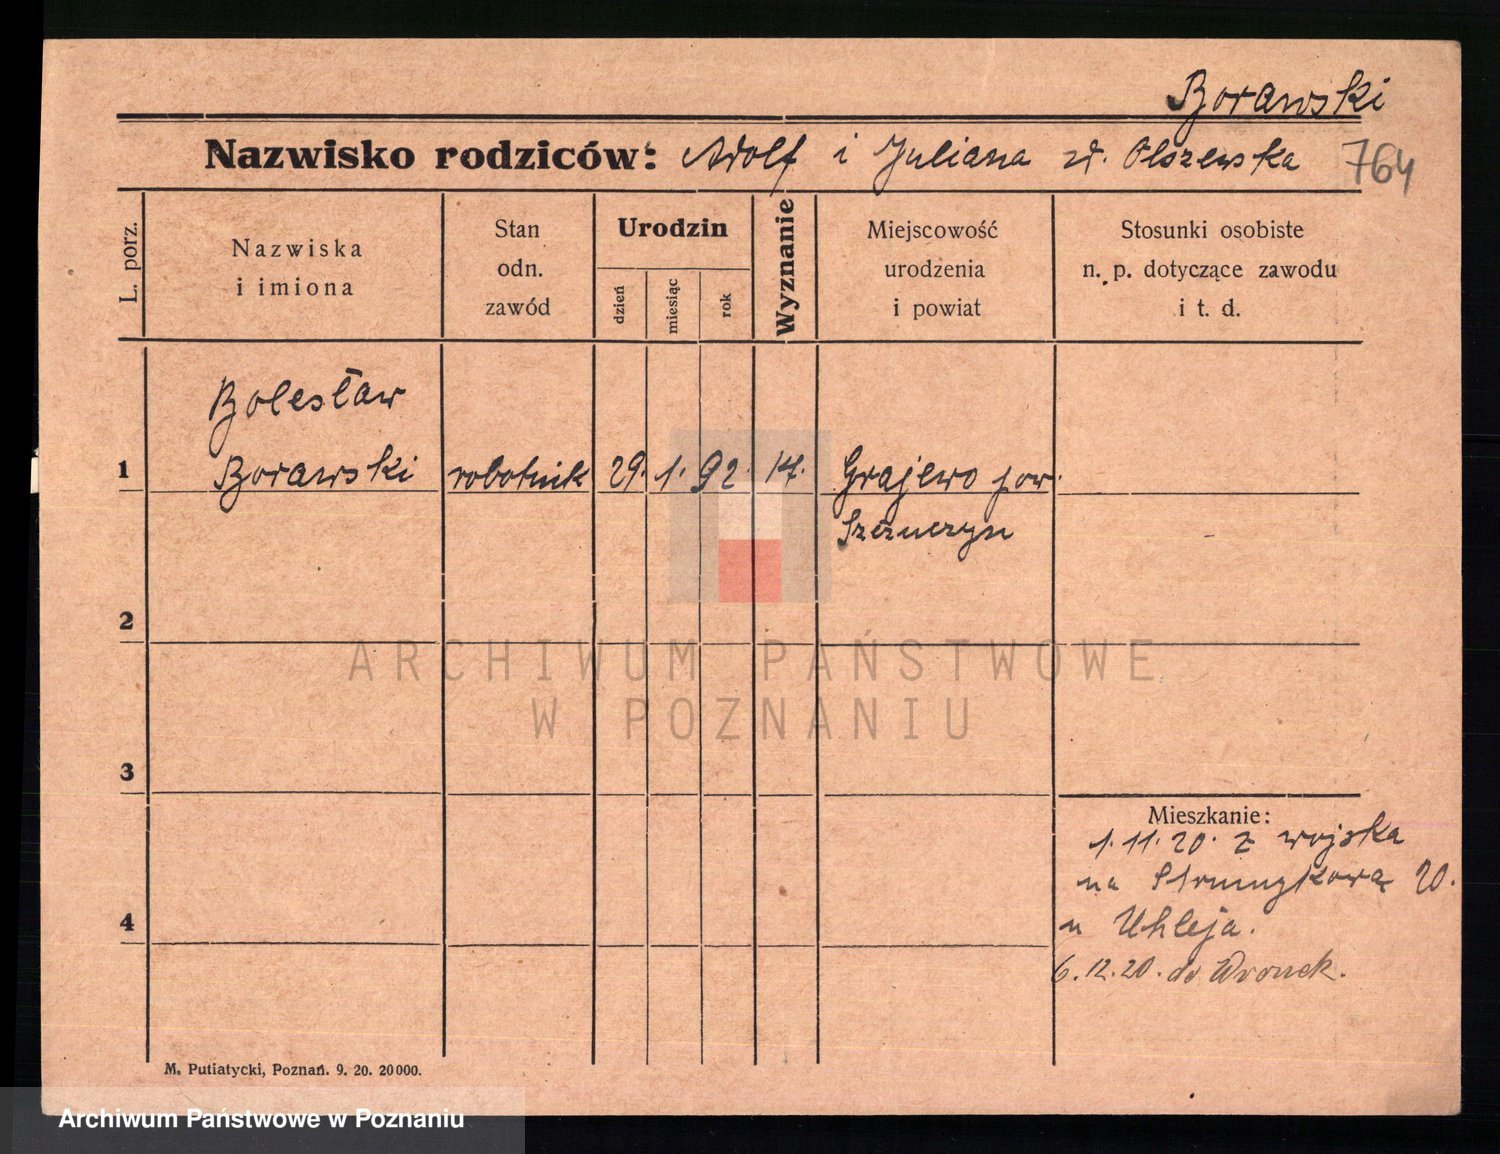 Borawski
Nazwisko rodziców: Adolf i Juliana zd. Olszewska 764
L. porz.
Nazwiska
i imiona
Stan
odn.
zawód
Urodzin
dzień
miesiąc
rok
Wyznanie
Miejscowość
urodzenia
i powiat
Stosunki osobiste
n. p. dotyczące zawodu
i t. d.
Bolesław
1 Borawski robotnik 29. 1. 92. kt. Grajewo pow.
Szczuczyn
2
3
4
Mieszkanie:
1.11.20. z wojska
na Strumykową 20.
u Uhleja.
6.12.20. do Wronek.
M. Putiatycki, Poznań. 9. 20. 20000.
ARCHIWUM PAŃSTWOWE
W POZNANIU
Archiwum Państwowe w Poznaniu